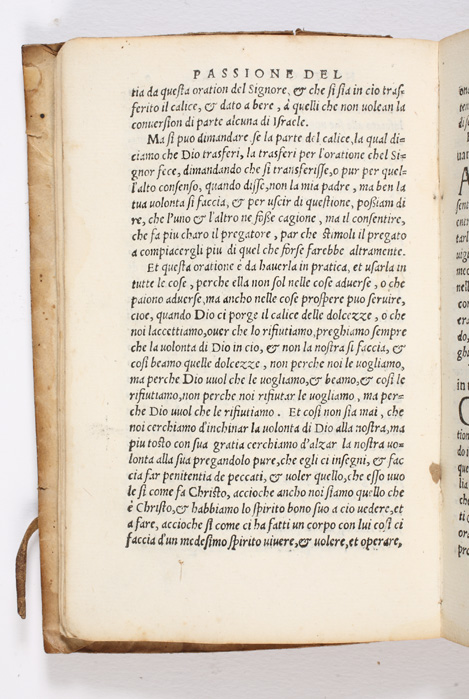 PASSIONE DEL
tia da questa oration del Signore, & che si sia in cio tras=
ferito il calice, & dato a bere, à quelli che non volean la
conversion di parte alcuna di Israele.
Ma si puo dimandare se la parte del calice, la qual di=
ciamo che Dio trasferi, la trasferi per l'oratione chel Si=
gnor fece, dimandando che si transferisse, o pur per quel=
l'alto consenso, quando disse, non la mia padre, ma ben la
tua volonta si faccia, & per uscir di questione, possiam di
re, che l'uno & l'altro ne fosse cagione, ma il consentire,
che fa piu charo il pregatore, par che stimoli il pregato
a compiacergli piu di quel che forse farebbe altramente.
Et questa oratione è da haverla in pratica, et usarla in
tutte le cose, perche ella non sol nelle cose adverse, o che
paiono adverse, ma ancho nelle cose prospere puo servire,
cioe, quando Dio ci porge il calice delle dolcezze, o che
noi laccettiamo, over che lo rifiutiamo, preghiamo sempre
che la volonta di Dio in cio, & non la nostra si faccia, &
cosi beamo quelle dolcezze, non perche noi le vogliamo,
ma perche Dio vuol che le vogliamo, & beamo, & cosi le
rifiutiamo, non perche noi rifiutar le vogliamo, ma per=
che Dio vuol che le rifiutiamo. Et cosi non sia mai, che
noi cerchiamo d'inchinar la volonta di Dio alla nostra, ma
piu tosto con sua gratia cerchiamo d'alzar la nostra vo=
lonta alla sua pregandolo pure, che egli ci insegni, & fac
cia far penitentia de peccati, & voler quello, che esso vuo
le si come fa Christo, accioche ancho noi siamo quello che
è Christo, & habbiamo lo spirito bono suo a cio vedere, et
a fare, accioche si come ci ha fatti un corpo con lui cosi ci
faccia d'un medesimo spirito vivere, & volere, et operare,